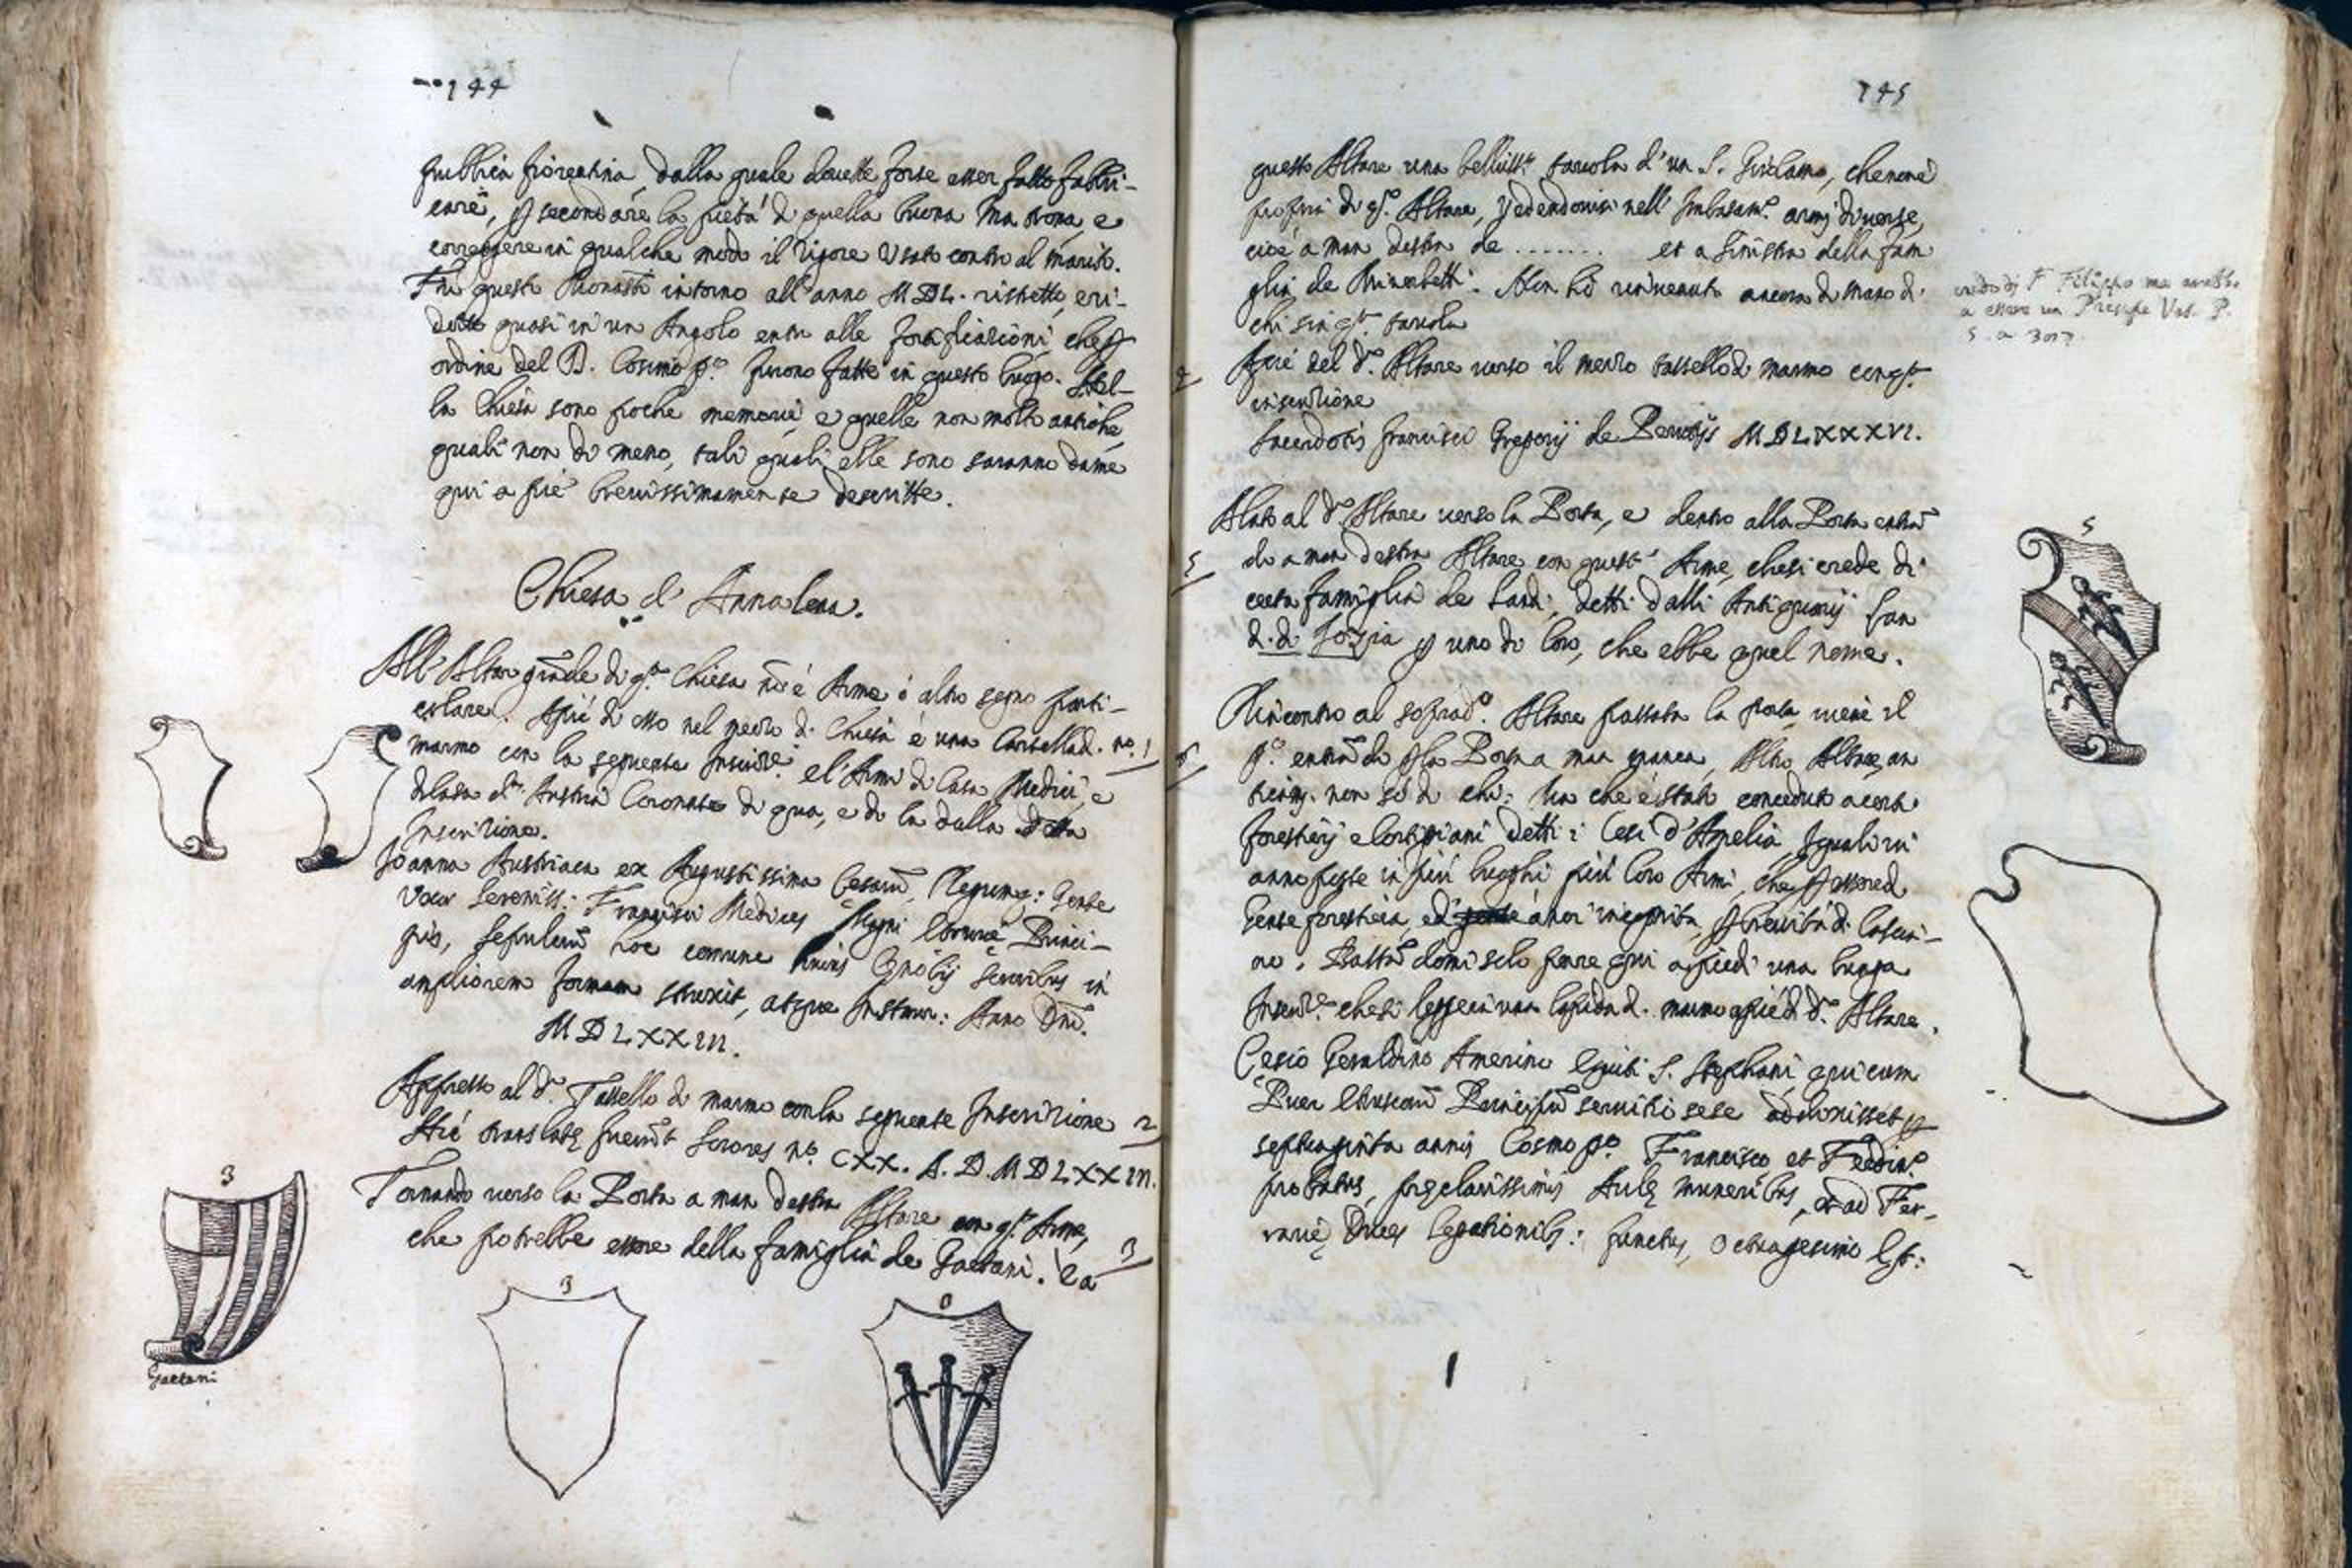 144
pubblica fiorentina, dalla quale dovette forse esser fatto fabbri-
care, p secondare la pietà di quella buona Matrona, e
correggere in qualche modo il rigore usato contro al marito.
Fu questo Monastº intorno all'anno MDL. ristretto, e ri-
dotto quasi in un Angolo entro alle fortificazioni, che p
ordine del D. Cosimo pº. furono fatte in questo luogo. Nel-
la Chiesa sono poche memorie, e quelle non molto antiche,
quali non di meno, tali quali elle sono saranno da me
qui a piè brevissimamente descritte.
Chiesa d'Annalena.
All'Altar grãde di qta. Chiesa nõ è Arme ò altro segno parti-
colare. Apiè di esso nel mezzo di Chiesa è una Cartella di
marmo con la seguente Inscrizne: e l'Armi di Casa Medici, e
di Casa d'Austria Coronate di qua, e di la dalla detta
Inscrizione.
no. 1
Joanna Austriaca ex Augustissima Cesarũ, Regumq: Gente
Uxor Sereniss: Francisci Medices Magni Etruriae Princi-
pis, sepulcrũ hoc comune huius Cenobij sororibus in
ampliorem formam struxit, atque Instaur: Anno Dnĩ.
MDLXXIII.
Appresso al do. Tassello di marmo con la seguente Inscrizione
2
Hic translatę fuerũt Sorores no. CXX. A. D. MDLXXIII.
Tornando verso la Porta a man destra Altare con qta. Arme,
che potrebbe essere della famiglia de Gaetani. E a
3
3
Gaetani
3
0
145
questo Altare una bellissa. tavola d'un S. Girolamo, che non è
propria di qo. Altare, vedendovisi nell'Imbasamo. armi diverse,
cioè a man destra de ....... et a sinistra della fam
glia de Minerbetti. Non hò rinvenuto ancora di mano di
chi sia qta. tavola
credo di F Filippo ma avebbe
a essere un Presepe Vas. P.
Apiè del do. Altare verso il mezzo tassello di marmo con qta.
inscrizione
Sacerdotis Francisci Gregorij de MDLXXXVI.
Alato al do. Altare verso la Porta, e dentro alla Porta entrã
do a man destra Altare con questa Arme, che si crede di
5
certa famiglia de Landi, detti dalli Antiquarij Lan
di di Sozia p uno di loro, che ebbe quel nome.
5
Rincontro al soprado. Altare passata la porta, viene il
po. entrãdo p la Porta a man manca, Altro Altare, an
6
ticam. non sò di chi: Ma che è stato conceduto a certi
forestieri e Cortigiani detti i Cesi d'Amelia, i quali vi
anno poste in più luoghi più loro Armi, che p essere di
gente forestiera, ed ancor incognita, p brevità di lascia-
no. Bastãdomi solo porre qui a piedi una lunga
Inscrizne. che si legge in una lapida di marmo apiè di do. Altare.
Cesio Geraldino Amerino Equiti S. Stephani, qui cum
Puer Etruscorũ Principũ servitio sese addixisset p
septuaginta annis Cosmo po. Francisco, et Ferdino.
probatus, pręclarissimis Aulę muneribus, et ad Fer-
rarię Duces legationibq: functus, octuagesimo